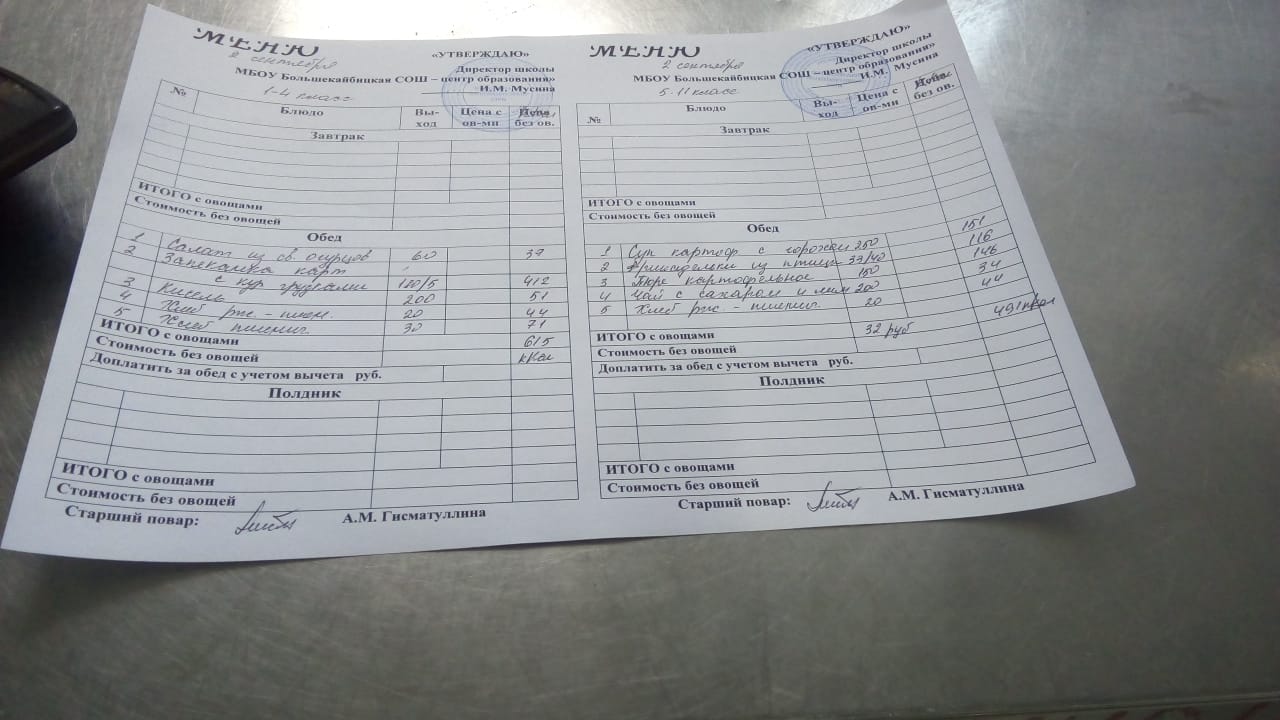 МЕНЮ
2 сентября
«УТВЕРЖДАЮ»
Директор школы
МБОУ Большекайбицкая СОШ – центр образования»
И.М. Мусина
1-4 класс
№ Блюдо Вы-ход Цена с ов-ми Цена без ов.
Завтрак
ИТОГО с овощами
Стоимость без овощей
Обед
1 Салат из св. огурцов 60 37
2 Запеканка карт
с кур грудками 180/5 412
3 Кисель 200 51
4 Хлеб рж. - пшен. 20 44
5 Хлеб пшениг. 30 71
ИТОГО с овощами 615
Стоимость без овощей ккал
Доплатить за обед с учетом вычета руб.
Полдник
ИТОГО с овощами
Стоимость без овощей
Старший повар: А.М. Гисматуллина
МЕНЮ
2 сентября
«УТВЕРЖДАЮ»
Директор школы
МБОУ Большекайбицкая СОШ – центр образования»
И.М. Мусина
5-11 класс
№ Блюдо Вы-ход Цена с ов-ми Цена без ов.
Завтрак
ИТОГО с овощами
Стоимость без овощей
Обед
1 Суп картоф с горохом 250 151
2 Фрикадельки из птицы 116
3 Пюре картофельное 150 146
4 Чай с сахаром и лим 200 34
5 Хлеб рж - пшениг. 20 44
ИТОГО с овощами 32 руб 491 ккал
Стоимость без овощей
Доплатить за обед с учетом вычета руб.
Полдник
ИТОГО с овощами
Стоимость без овощей
Старший повар: А.М. Гисматуллина